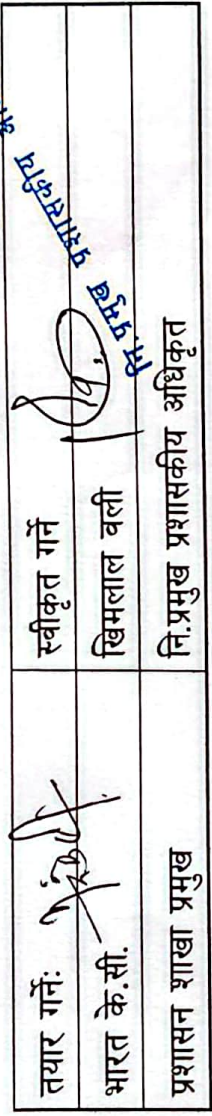 तयार गर्ने:
स्वीकृत गर्ने
भारत के.सी.
खिमलाल वली
प्रशासन शाखा प्रमुख
नि.प्रमुख प्रशासकीय अधिकृत
नि.प्रमुख प्रशासकीय